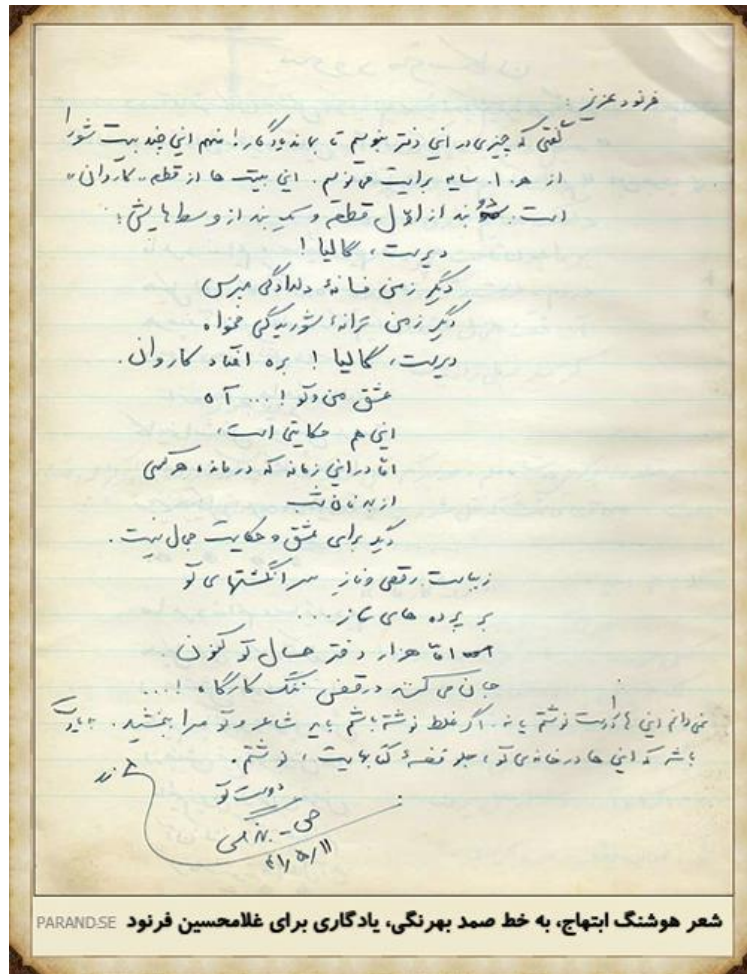 فرنود عزیز!
گفتی که چیزی در این دفتر بنویسم تا بماند یادگار! منهم این چند بیت شعر را
از ه. ا. سایه برایت می نویسم. این بیت ها از قطعه «کاروان»
است. بند از اوّل قطعه و یک بند از وسط هایش:
دیریست، گالیا!
دیگر زمن فسانهٔ دلدادگی مپرس
دیگر زمن ترانهٔ شوریدگی مخواه
دیرست، گالیا! بره افتاد کاروان.
عشق من و تو!... آه
این هم حکایتی است،
امّا در این زمانه که درمانده هر کسی
از بهر نان شب
دیگر برای عشق و حکایت مجال نیست.
زیباست رقص و ناز سرانگشتهای تو
بر پرده های ساز...
امّا هزار دختر همسال تو کنون
جان می کنند در قفس تنگ کارگاه!...
نمی دانم این ها درست نوشتم یا نه. اگر غلط نوشته باشم باید شاعر و تو مرا ببخشید. یادت
باشد که این ها در خانه ی تو، جلو قفسهٔ کتابهایت، نوشتم.
دوست تو
ص - بهرنگی
۴۱/۵/۱۱
شعر هوشنگ ابتهاج، به خط صمد بهرنگی، یادگاری برای غلامحسین فرنود
PARAND.SE